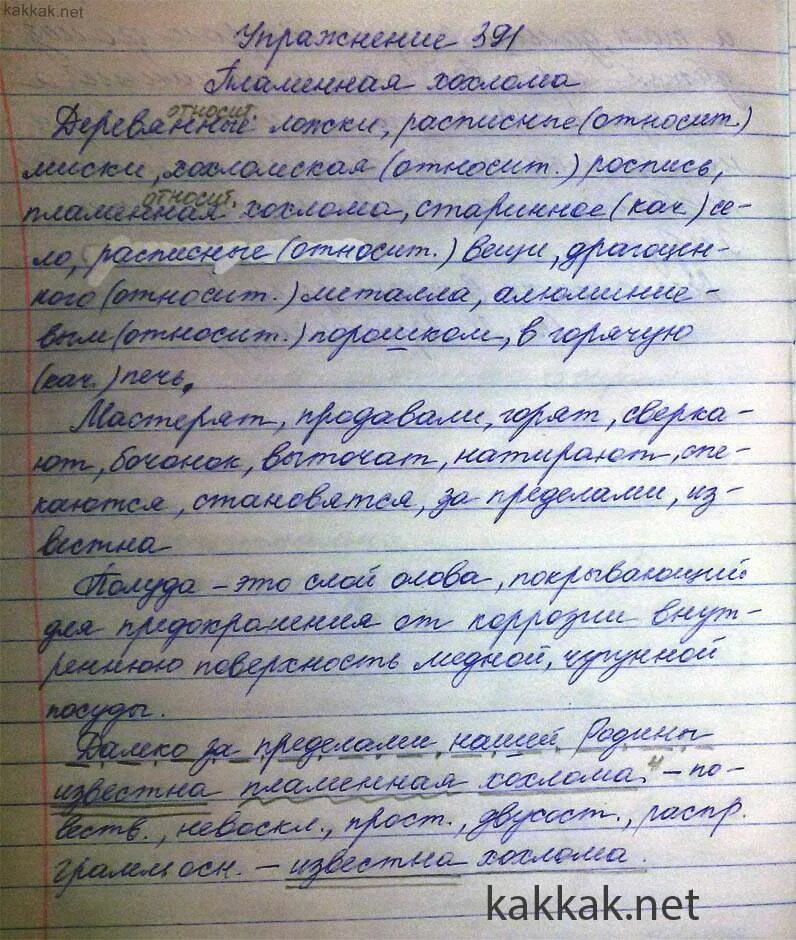 kakkak.net
Упражнение 391
Пламенная хохлома
относит.
Деревянные ложки, расписные (относит.)
миски, хохломская (относит.) роспись,
относит.
пламенная хохлома, старинное (кач.) се-
ло, расписные (относит.) вещи, драгоцен-
ного (относит.) металла, алюминие-
вым (относит.) порошком, в горячую
(кач.) печь.
Мастерят, продавали, горят, сверка-
ют, бочонок, выточат, натирают, спе-
каются, становятся, за пределами, из-
вестна
Полуда – это слой олова, покрывающий
для предохранения от коррозии внут-
реннюю поверхность медной, чугунной
посуды.
Далеко за пределами нашей Родины
известна пламенная хохлома. – по-
веств., невоскл., прост., двусост., распр.
грамм осн. – известна хохлома.
kakkak.net